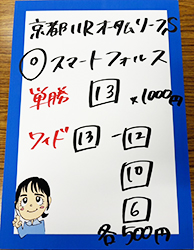 京都11Rオータムリーフ,S
◎スマートフォルス
単勝 13 ×1000円
ワイド 13 - 12
10
6
各500円